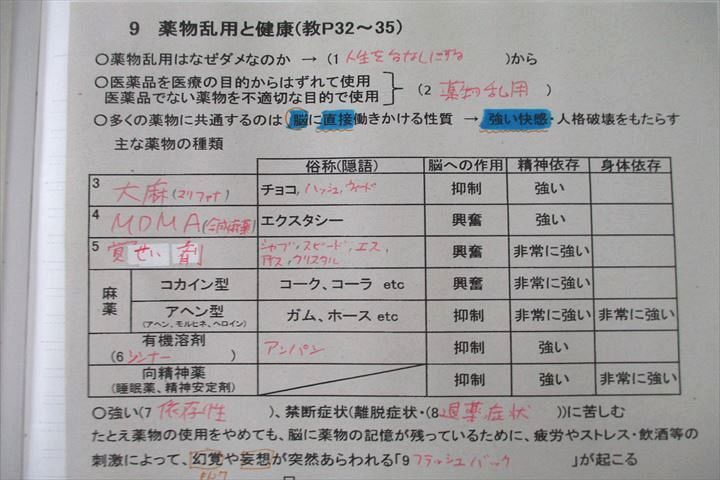 9 薬物乱用と健康(教P32～35)
○薬物乱用はなぜダメなのか → (1 人生を台なしにする )から
○医薬品を医療の目的からはずれて使用
医薬品でない薬物を不適切な目的で使用 (2 薬物乱用 )
○多くの薬物に共通するのは 脳に直接働きかける性質 → 強い快感・人格破壊をもたらす
主な薬物の種類
俗称(隠語) 脳への作用 精神依存 身体依存
3 大麻(マリファナ) チョコ, ハッシュ, ウィード 抑制 強い
4 MDMA(合成麻薬) エクスタシー 興奮 強い
5 覚せい剤 シャブ, スピード, エス, アイス, クリスタル 興奮 非常に強い
麻薬 コカイン型 コーク、コーラ etc 興奮 非常に強い
アヘン型 (アヘン、モルヒネ、ヘロイン) ガム、ホース etc 抑制 非常に強い 非常に強い
有機溶剤 (6 シンナー ) アンパン 抑制 強い
向精神薬 (睡眠薬、精神安定剤) 抑制 非常に強い
○強い(7 依存性 )、禁断症状(離脱症状・(8 退薬症状 ))に苦しむ
たとえ薬物の使用をやめても、脳に薬物の記憶が残っているために、疲労やストレス・飲酒等の
刺激によって、幻覚や妄想が突然あらわれる「9 フラッシュバック 」が起こる